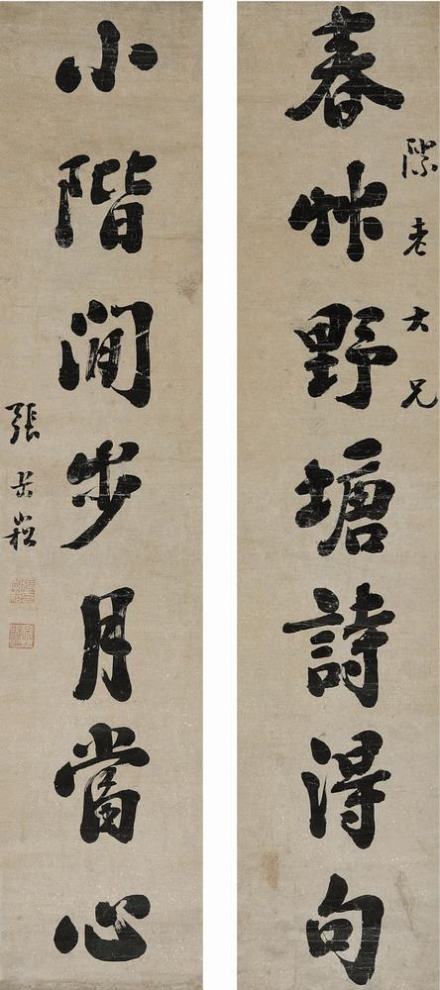 春艸野塘詩得句
老大兄
小階閒步月當心
張岳崧